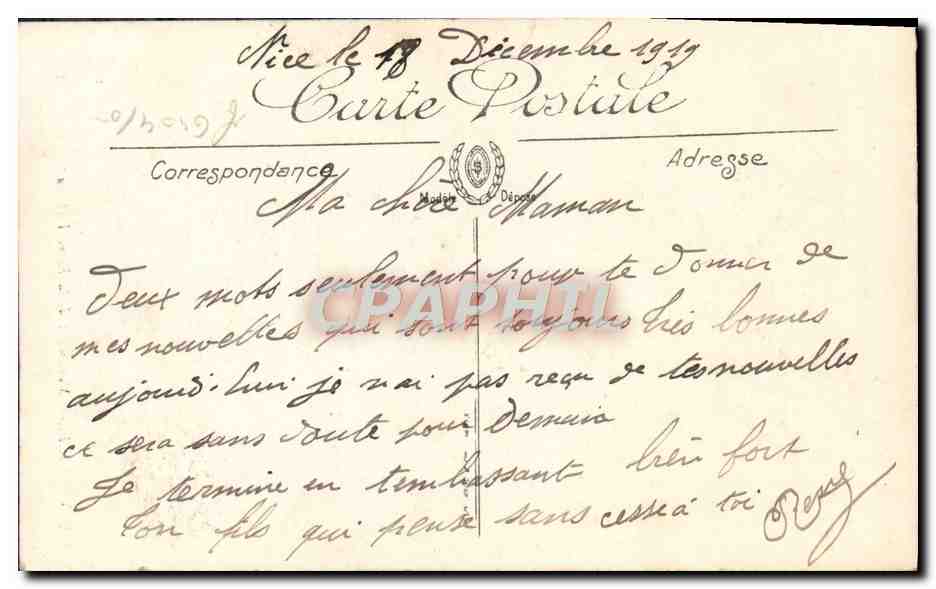 Nice le 18 Dicembre 1919
Carte Postale
Correspondance
Adresse
Modèle Déposé
Ma chère Maman
Deux mots seulement pour te donner de
mes nouvelles qui sont toujours très bonnes
aujourd'hui je n'ai pas reçu de tes nouvelles
ce sera sans doute pour Demain
Je termine en t'embrassant bien fort
Ton fils qui pense sans cesse à toi
CPAPHTI